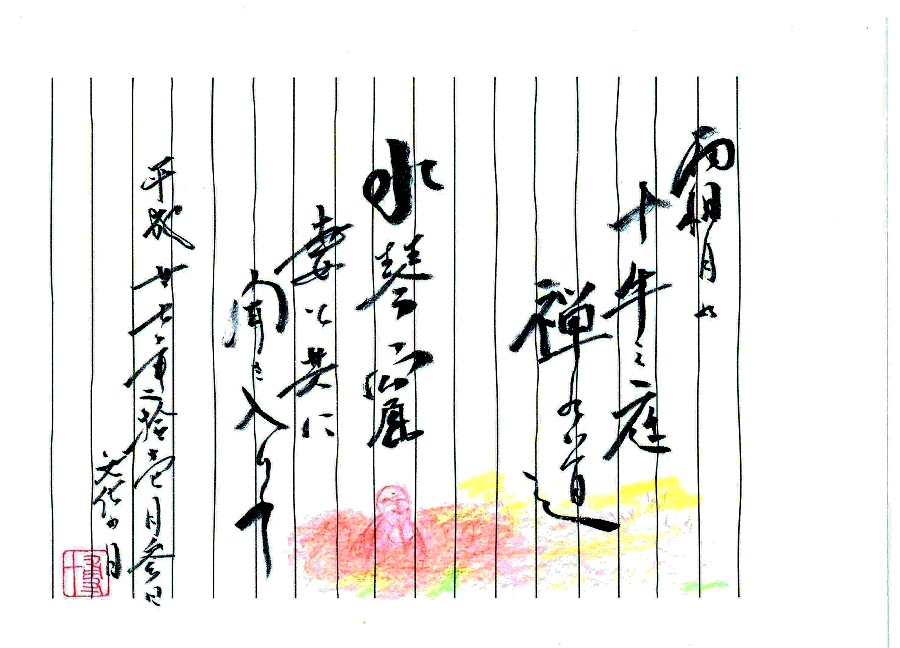 霜月の
十年之庭
禅の道
水琴窟
妻と共に
聞き入りて
平成廿七年拾壱月参日
文化の日